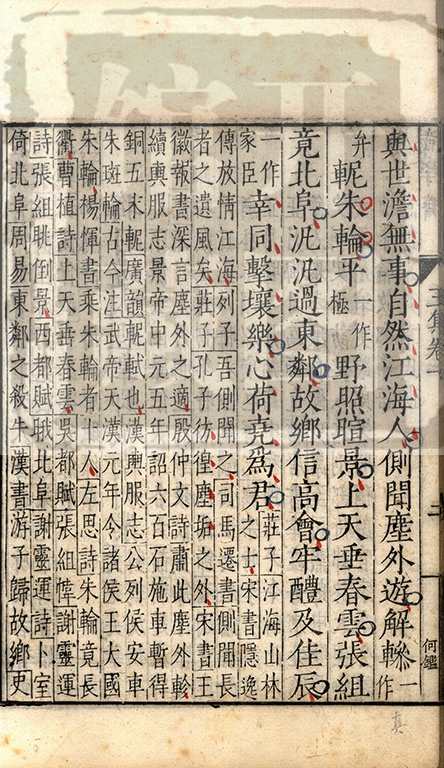 與世澹無事自然江海人側聞塵外遊解驂一作
弁軛朱輪平一作極野照暄景上天垂春雲張組
竟北阜汎汎過東鄰故鄉信高會牢醴及佳辰
一作家臣幸同擊壤樂心荷堯為君莊子江海山林之士宋書隱逸
傳放情江海列子吾側聞之司馬遷書側聞長
者之遺風矣莊子孔子彷徨塵垢之外宋書王
徽報書深言塵外之適殷仲文詩肅此塵外軫
續輿服志景帝中元五年詔六百石施車得
銅五末軛廣韻軛軾也漢輿服志公列侯安車
朱斑輪古今注武帝天漢元年令諸侯王大國
朱輪楊惲書乘朱輪者十人左思詩朱輪竟長
衢曹植詩上天垂春雲吳都賦張組帷謝靈運
詩張組眺倒景西都賦北阜謝靈運詩卜室
倚北阜周易東鄰之殺牛漢書游子歸故鄉史
何鑑
真